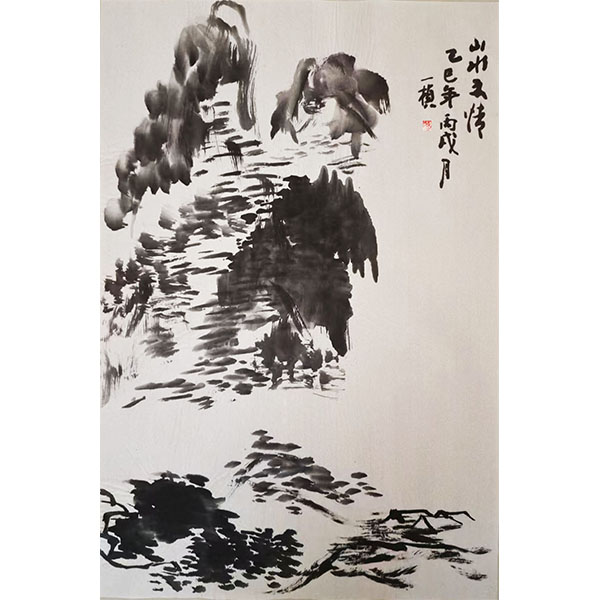 山水情
乙巳年丙戌月
一